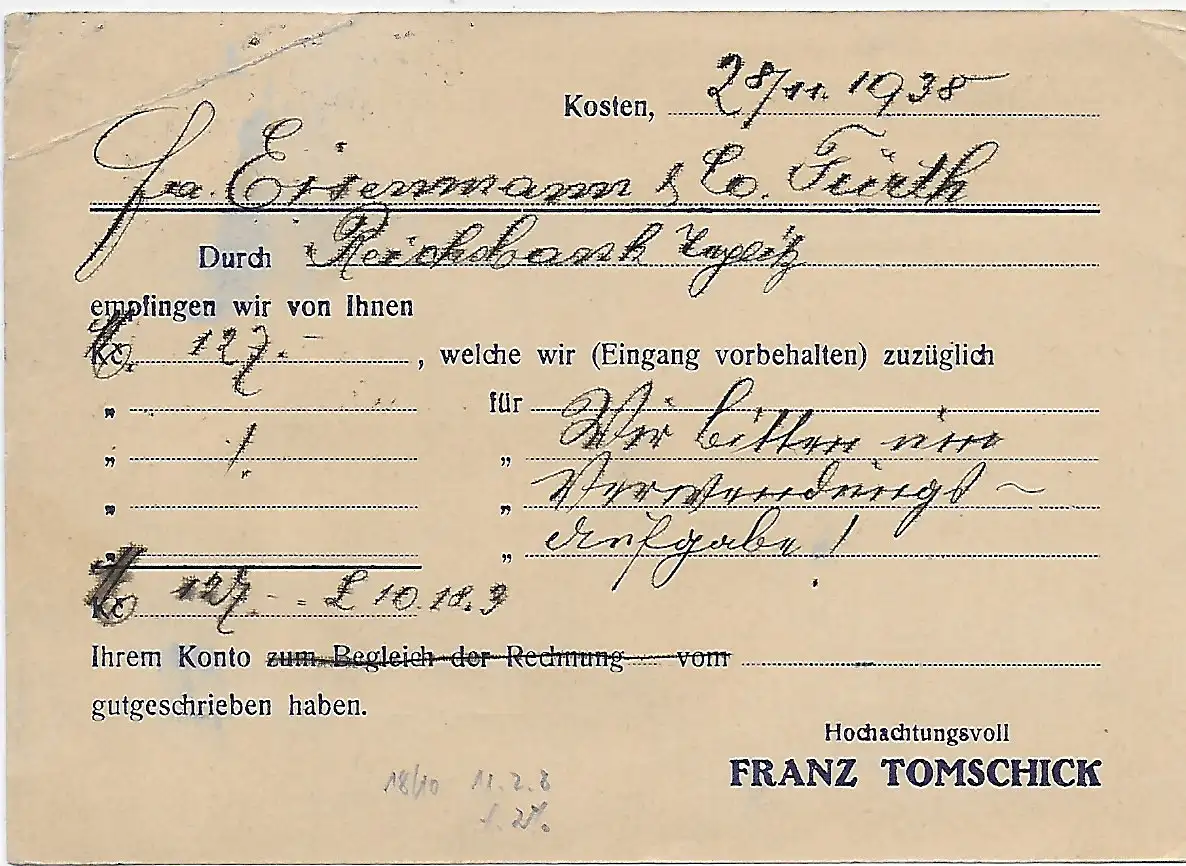 Kosten, 28/11. 1938
Fa. Eisenmann & Co. Fürth
Durch Reichsbank
empfingen wir von Ihnen
Kč. 127.- , welche wir (Eingang vorbehalten) zuzüglich
„ für Wir bitten um
„ /. „ Verwendungs-
„ „ aufgabe!
„ „
Kč 127.- = £ 10.18.9
Ihrem Konto zum Begleich der Rechnung vom
gutgeschrieben haben.
Hochachtungsvoll
FRANZ TOMSCHICK
18/10 11.2.8
2%